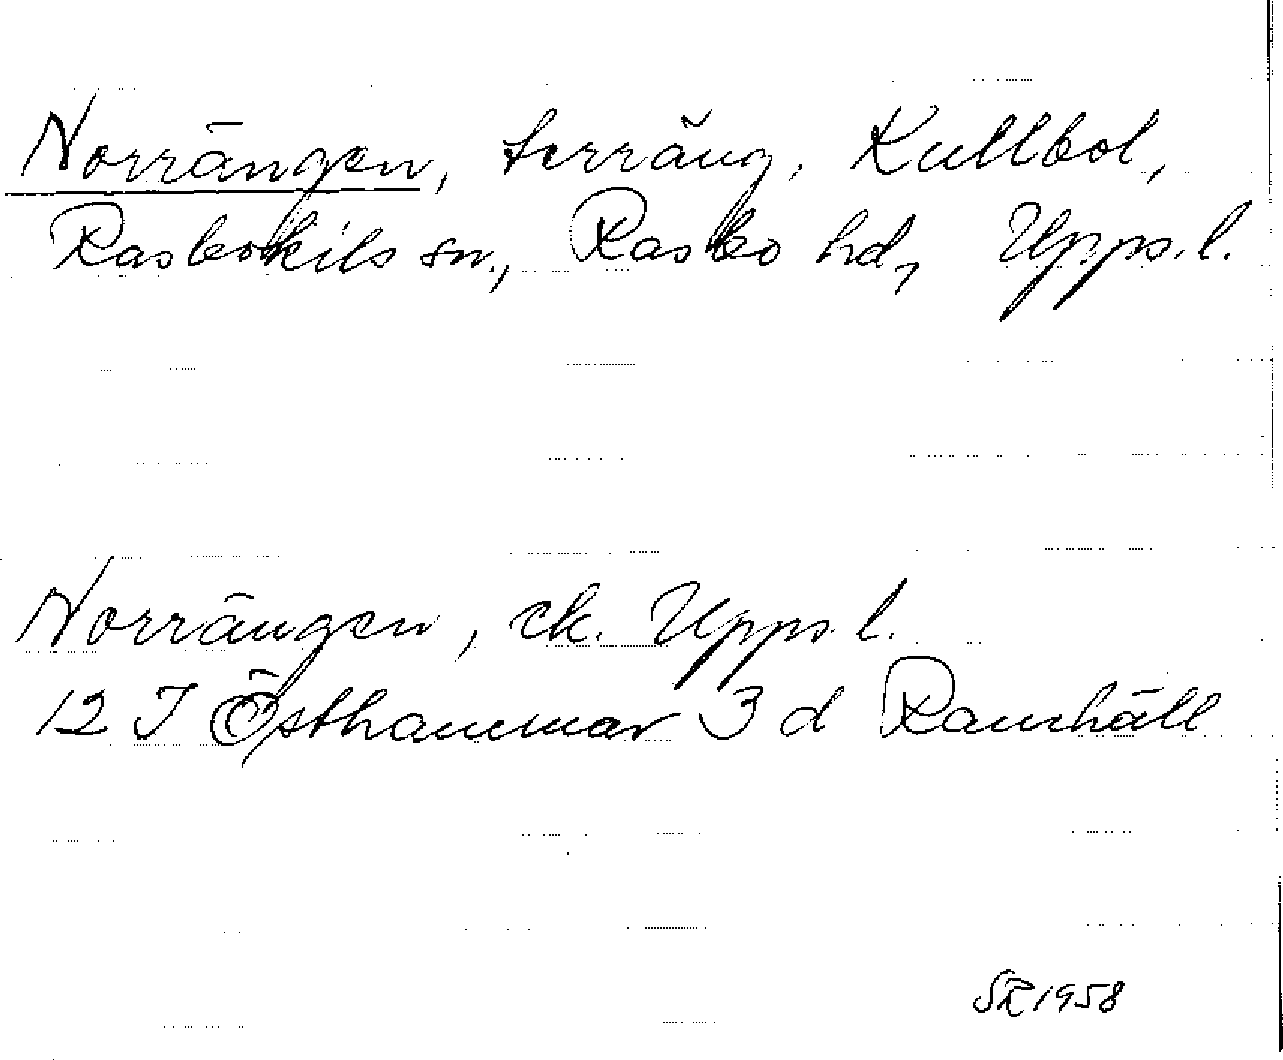 Norrängen, terräng, Kullbol,
Rasbokils sn., Rasbo hd, Upps.l.
Norrängen, ek. Upps.l.
12 I Östhammar 3 d Ramhäll
SR 1958